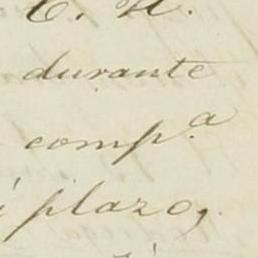 durante
comp.ª
á plazo,